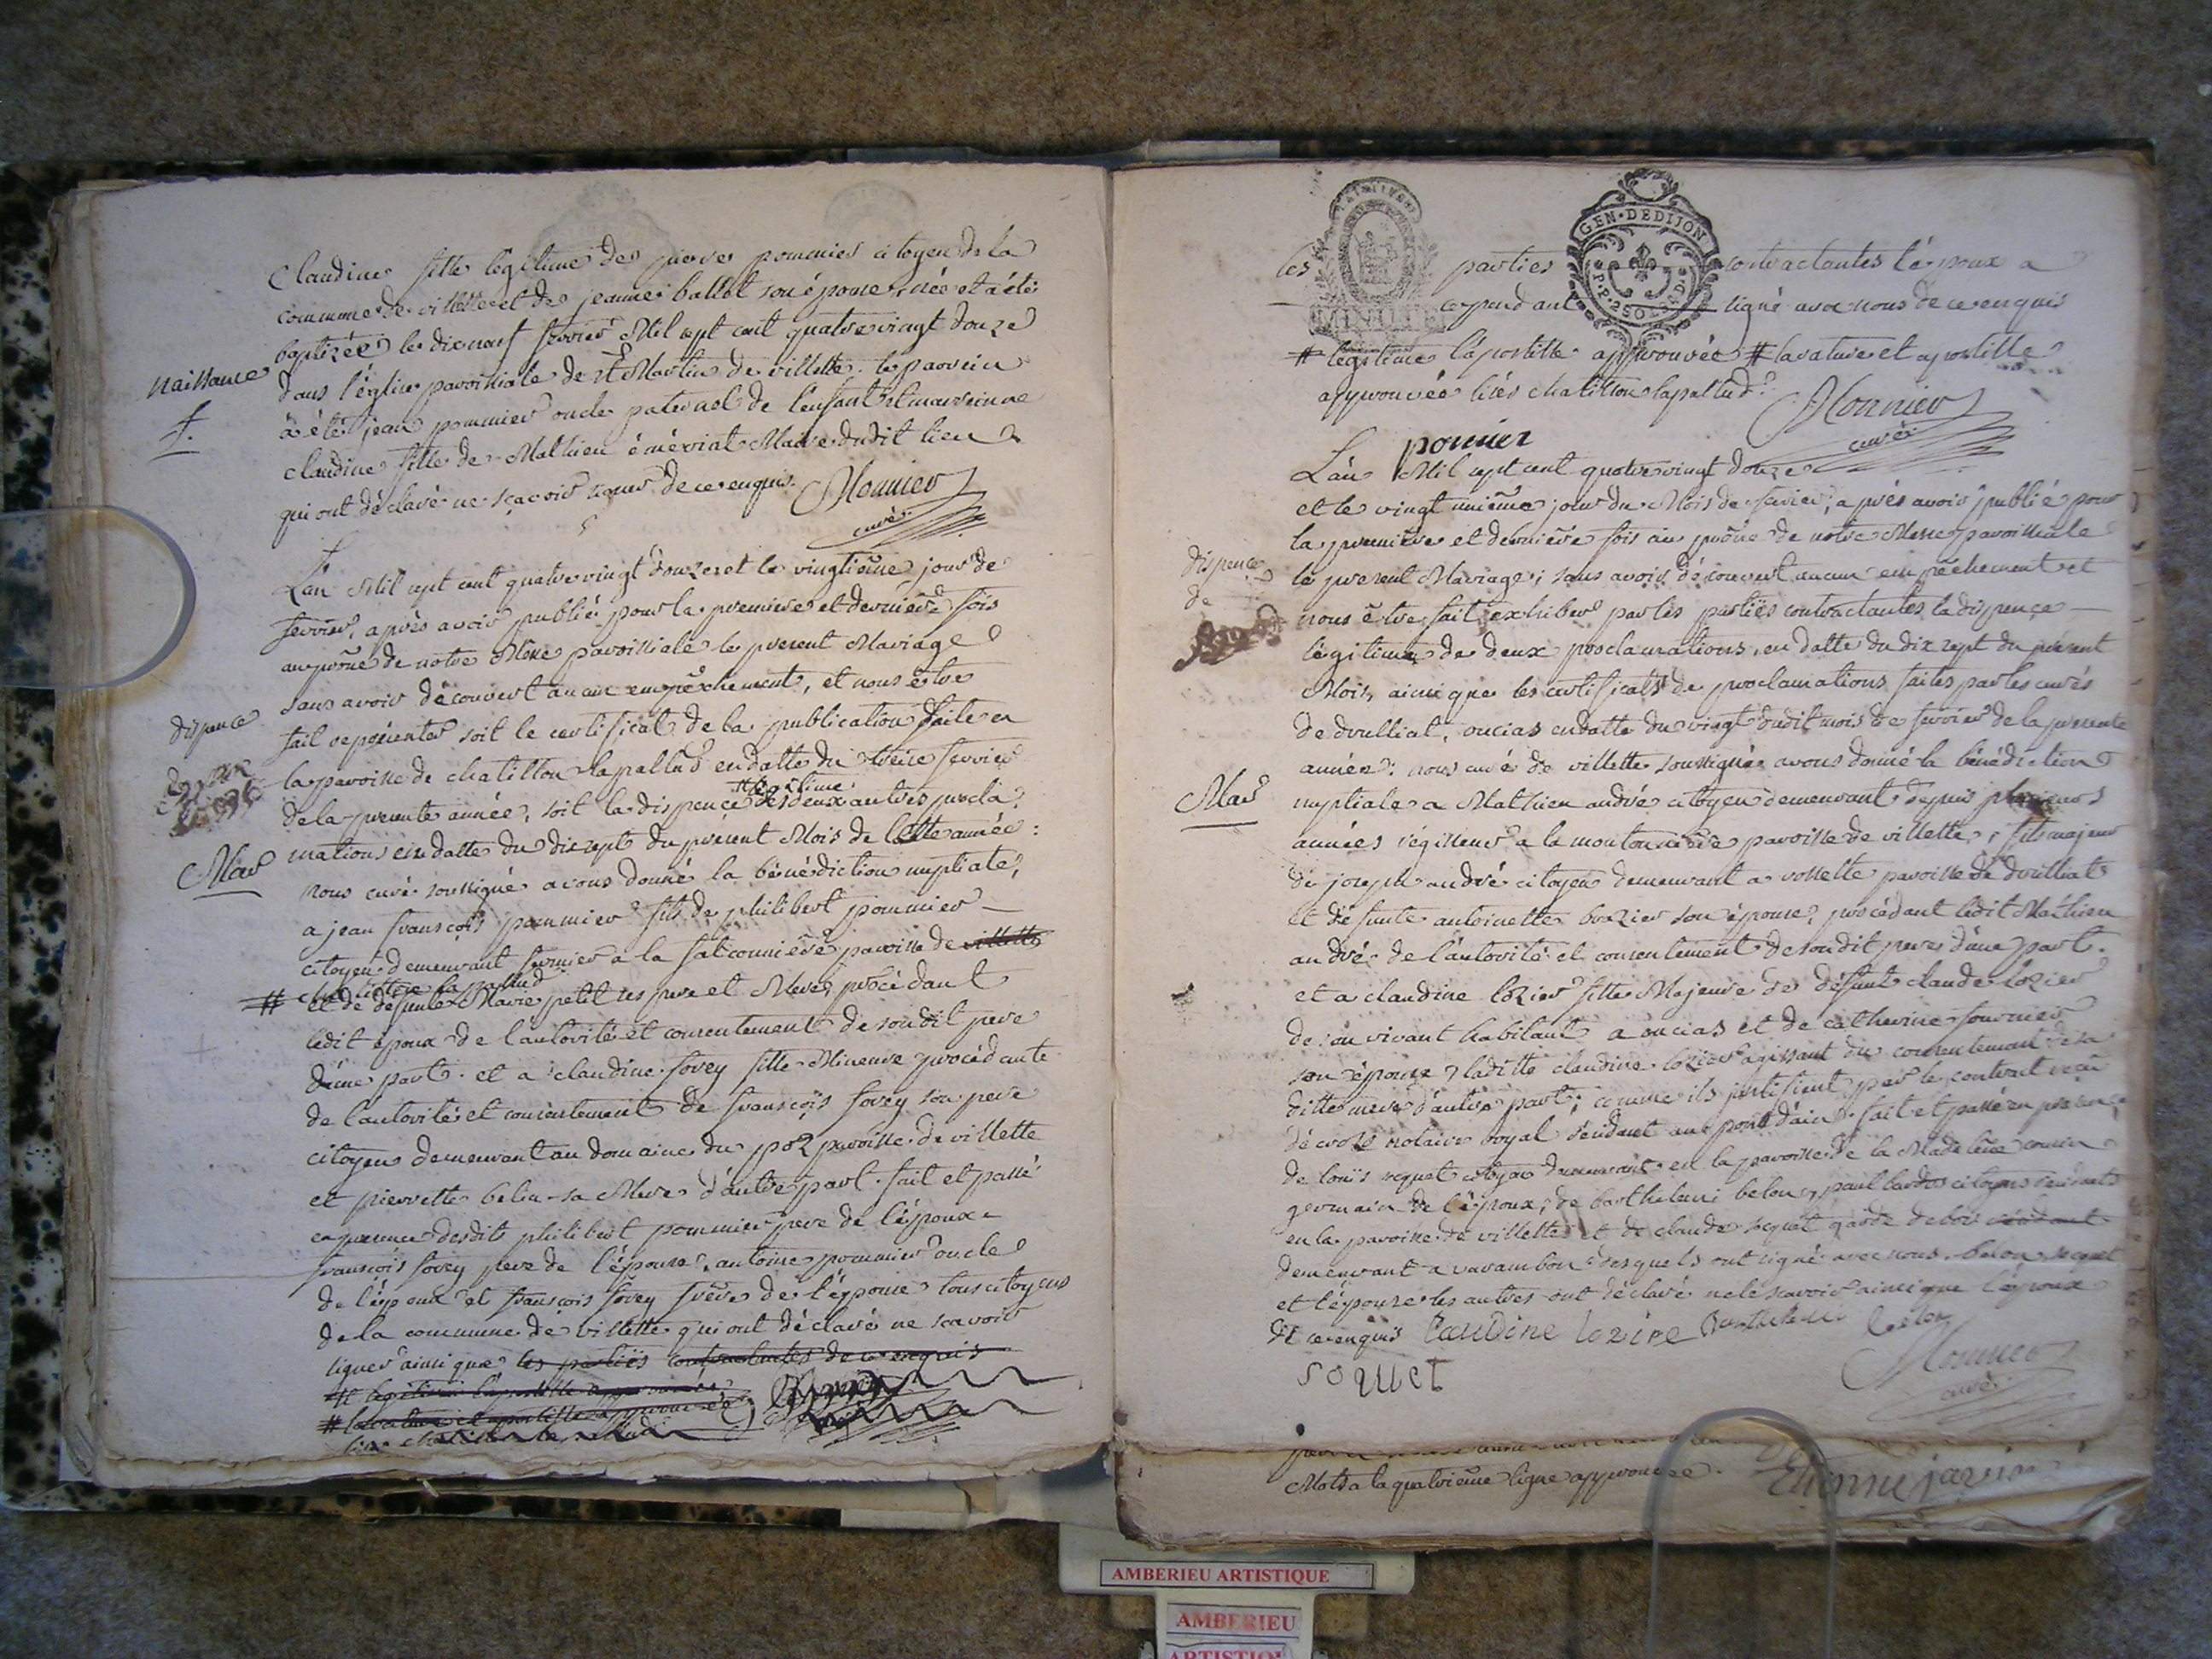 Claudine fille légitime de pierre pommier citoyen de la
commune de villette et de jeanne ballet son épouse née et a été
baptizée le dix neuf fevrier Mil sept cent quatre vingt douze
naissance
dans l'église paroissiale de St Martin de villette. le parrein
f.
a été jean pommier oncle paternel de l'enfant et marreinne
claudine fille de Mathieu éméviat Maire dudit lieu
qui ont déclaré ne sçavoir signer de ce enquis. Monnier
curé
L'an Mil sept cent quatre vingt douze et le vingtième jour de
fevrier, après avoir publié pour la premiere et derniere fois
au prône de notre Messe paroissiale le present Mariage
sans avoir découvert aucun empêchement, et nous être
dispence
fait représenter soit le certificat de la publication faite en
la paroisse de chatillon lapallud en datte du treize fevrier
# légitime
de la presente année, soit la dispence de deux autres procla
mations en datte du dix sept du présent Mois de cette année :
Mar
nous curé soussigné avons donné la bénédiction nuptiale,
a jean francois pommier fils de philibert pommier
citoyen demeurant fermier a la falconniere paroisse de villette
# chatillon la pallud
et de defunte Marie petit ses pere et Mere, procédant
ledit époux de l'autorité et consentement de son dit pere
d'une part. et a claudine forey fille Mineure procédante
de l'autorité et consentement de francois forey son pere
citoyen demeurant au domaine du poz paroisse de villette
et pierrette belin sa Mere d'autre part. fait et passé
en presence desdits philibert pommier pere de l'époux
francois forey pere de l'épouse, antoine pommier oncle
de l'époux et francois forey frère de l'épouse tous citoyens
de la commune de villette qui ont déclaré ne scavoir
signer ainsi que les parties contractantes de ce enquis
# légitime l'apostille approuvée
# la rature et apostille approuvée
lisés chatillon la pallud
GEN · DE DIJON
P.P. 2 SOLS
les parties contractantes l'époux a
cependant signé avec nous de ce enquis
# légitime l'apostille approuvée # la rature et apostille
approuvée lisés chatillon lapallud.
Monnier
curé
pomier
L'an Mil sept cent quatre vingt douze
et le vingt unième jour du Mois de fevrier, après avoir publié pour
la premiere et derniere fois au prône de notre Messe paroissiale
dispence
le present Mariage; sans avoir découvert aucun empêchement et
de
nous être fait exhiber par les parties contractantes la dispence
légitime de deux proclamations, en datte du dix sept du present
Mois, ainsi que les certificats de proclamations faites par les curés
de druilliat, oucias en datte du vingt dudit mois de fevrier de la presente
année: nous curé de villette soussigné avons donné la bénédiction
Mar
nuptiale a Mathieu andré citoyen demeurant depuis plusieurs
années régisseur a la moutonniere paroisse de villette, fils majeur
de joseph andré citoyen demeurant a rossette paroisse de druillat
et défunte antoinette brazier son épouse, procédant ledit Mathieu
andré de l'autorité et consentement de son dit pere d'une part.
et a claudine lozier fille Majeure de défunt claude lozier
de son vivant habitant a oucias et de catherine fournier
son épouse, laditte claudine lozier agissant du consentement de sa
ditte mere d'autre part; comme ils justifient par le contrat reçu
notaire royal résidant au pont d'ain. fait et passé en presence
de louis sequet citoyen demeurant en la paroisse de la Madeleine cousin
germain de l'époux, de barthelemi belon, paul citoyens residants
en la paroisse de villette et de claude sequet garde de bois residant
demeurant a varambon desquels ont signé avec nous. belon sequet
et l'épouse les autres ont déclaré ne le scavoir ainsi que l'époux
de ce enquis Claudine lozire Barthelemi belon
soquet
Monnier
curé
Mots a la quatrieme ligne approuvée.
Etienne jarrin
AMBERIEU ARTISTIQUE
AMBERIEU
ARTISTIQUE